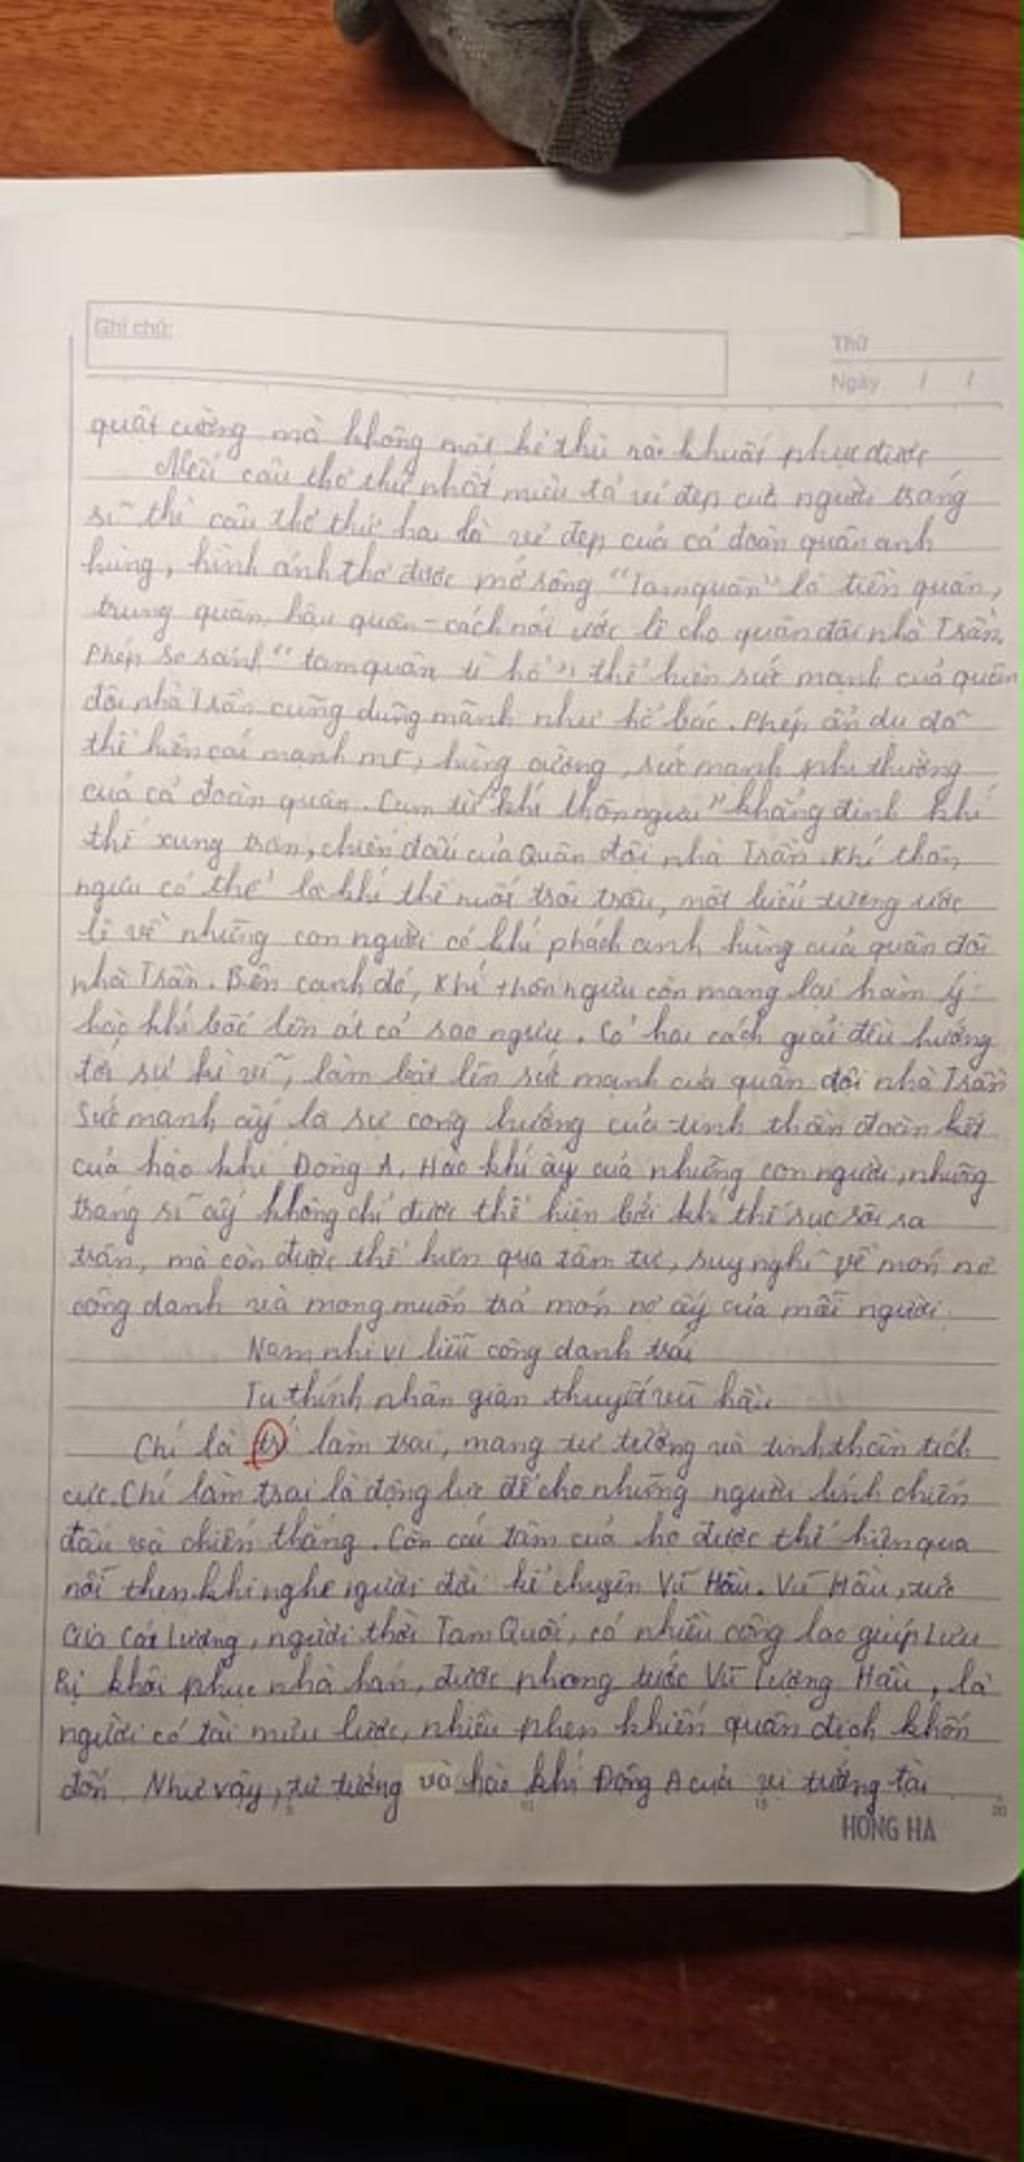 Ghi chú:
Thứ
Ngày / /
quật cường mà không một kẻ thù nào khuất phục được
Nếu câu thơ thứ nhất miêu tả vẻ đẹp của người tráng
sĩ thì câu thơ thứ hai là vẻ đẹp của cả đoàn quân anh
hùng, hình ảnh thơ được mở rộng "Tam quân" là tiền quân,
trung quân, hậu quân - cách nói ước lệ cho quân đội nhà Trần.
Phép so sánh "tam quân tì hổ" thể hiện sức mạnh của quân
đội nhà Trần cũng dũng mãnh như hổ báo. Phép ẩn dụ đã
thể hiện cái mạnh mẽ, hùng cường, sức mạnh phi thường
của cả đoàn quân. Cụm từ "khí thôn ngưu" khẳng định khí
thế xung trận, chiến đấu của Quân đội nhà Trần. Khí thôn
ngưu có thể là khí thế nuốt trôi trâu, một biểu tượng ước
lệ về những con người có khí phách anh hùng của quân đội
nhà Trần. Bên cạnh đó, Khí thôn ngưu còn mang lại hàm ý
hào khí bốc lên át cả sao ngưu. Cả hai cách giải đều hướng
tới sự kì vĩ, làm bật lên sức mạnh của quân đội nhà Trần
Sức mạnh ấy là sự cộng hưởng của tinh thần đoàn kết
của hào khí Đông A. Hào khí ấy của những con người, những
tráng sĩ ấy không chỉ được thể hiện bởi khí thế sục sôi ra
trận, mà còn được thể hiện qua tâm tư, suy nghĩ về món nợ
công danh và mong muốn trả món nợ ấy của mỗi người.
Nam nhi vị liễu công danh trái
Tu thính nhân gian thuyết vũ hầu
Chí là trí làm trai, mang tư tưởng và tinh thần tích
cực. Chí làm trai là động lực để cho những người lính chiến
đấu và chiến thắng. Còn cái tâm của họ được thể hiện qua
nỗi thẹn khi nghe người đời kể chuyện Vũ Hầu. Vũ Hầu, tức
Gia Cát Lượng, người thời Tam Quốc, có nhiều công lao giúp Lưu
Bị khôi phục nhà hán, được phong tước Vũ Lượng Hầu, là
người có tài mưu lược, nhiều phen khiến quân địch khốn
đốn. Như vậy, tư tưởng và hào khí Đông A của vị tướng tài
5 10 15 20
HỒNG HÀ